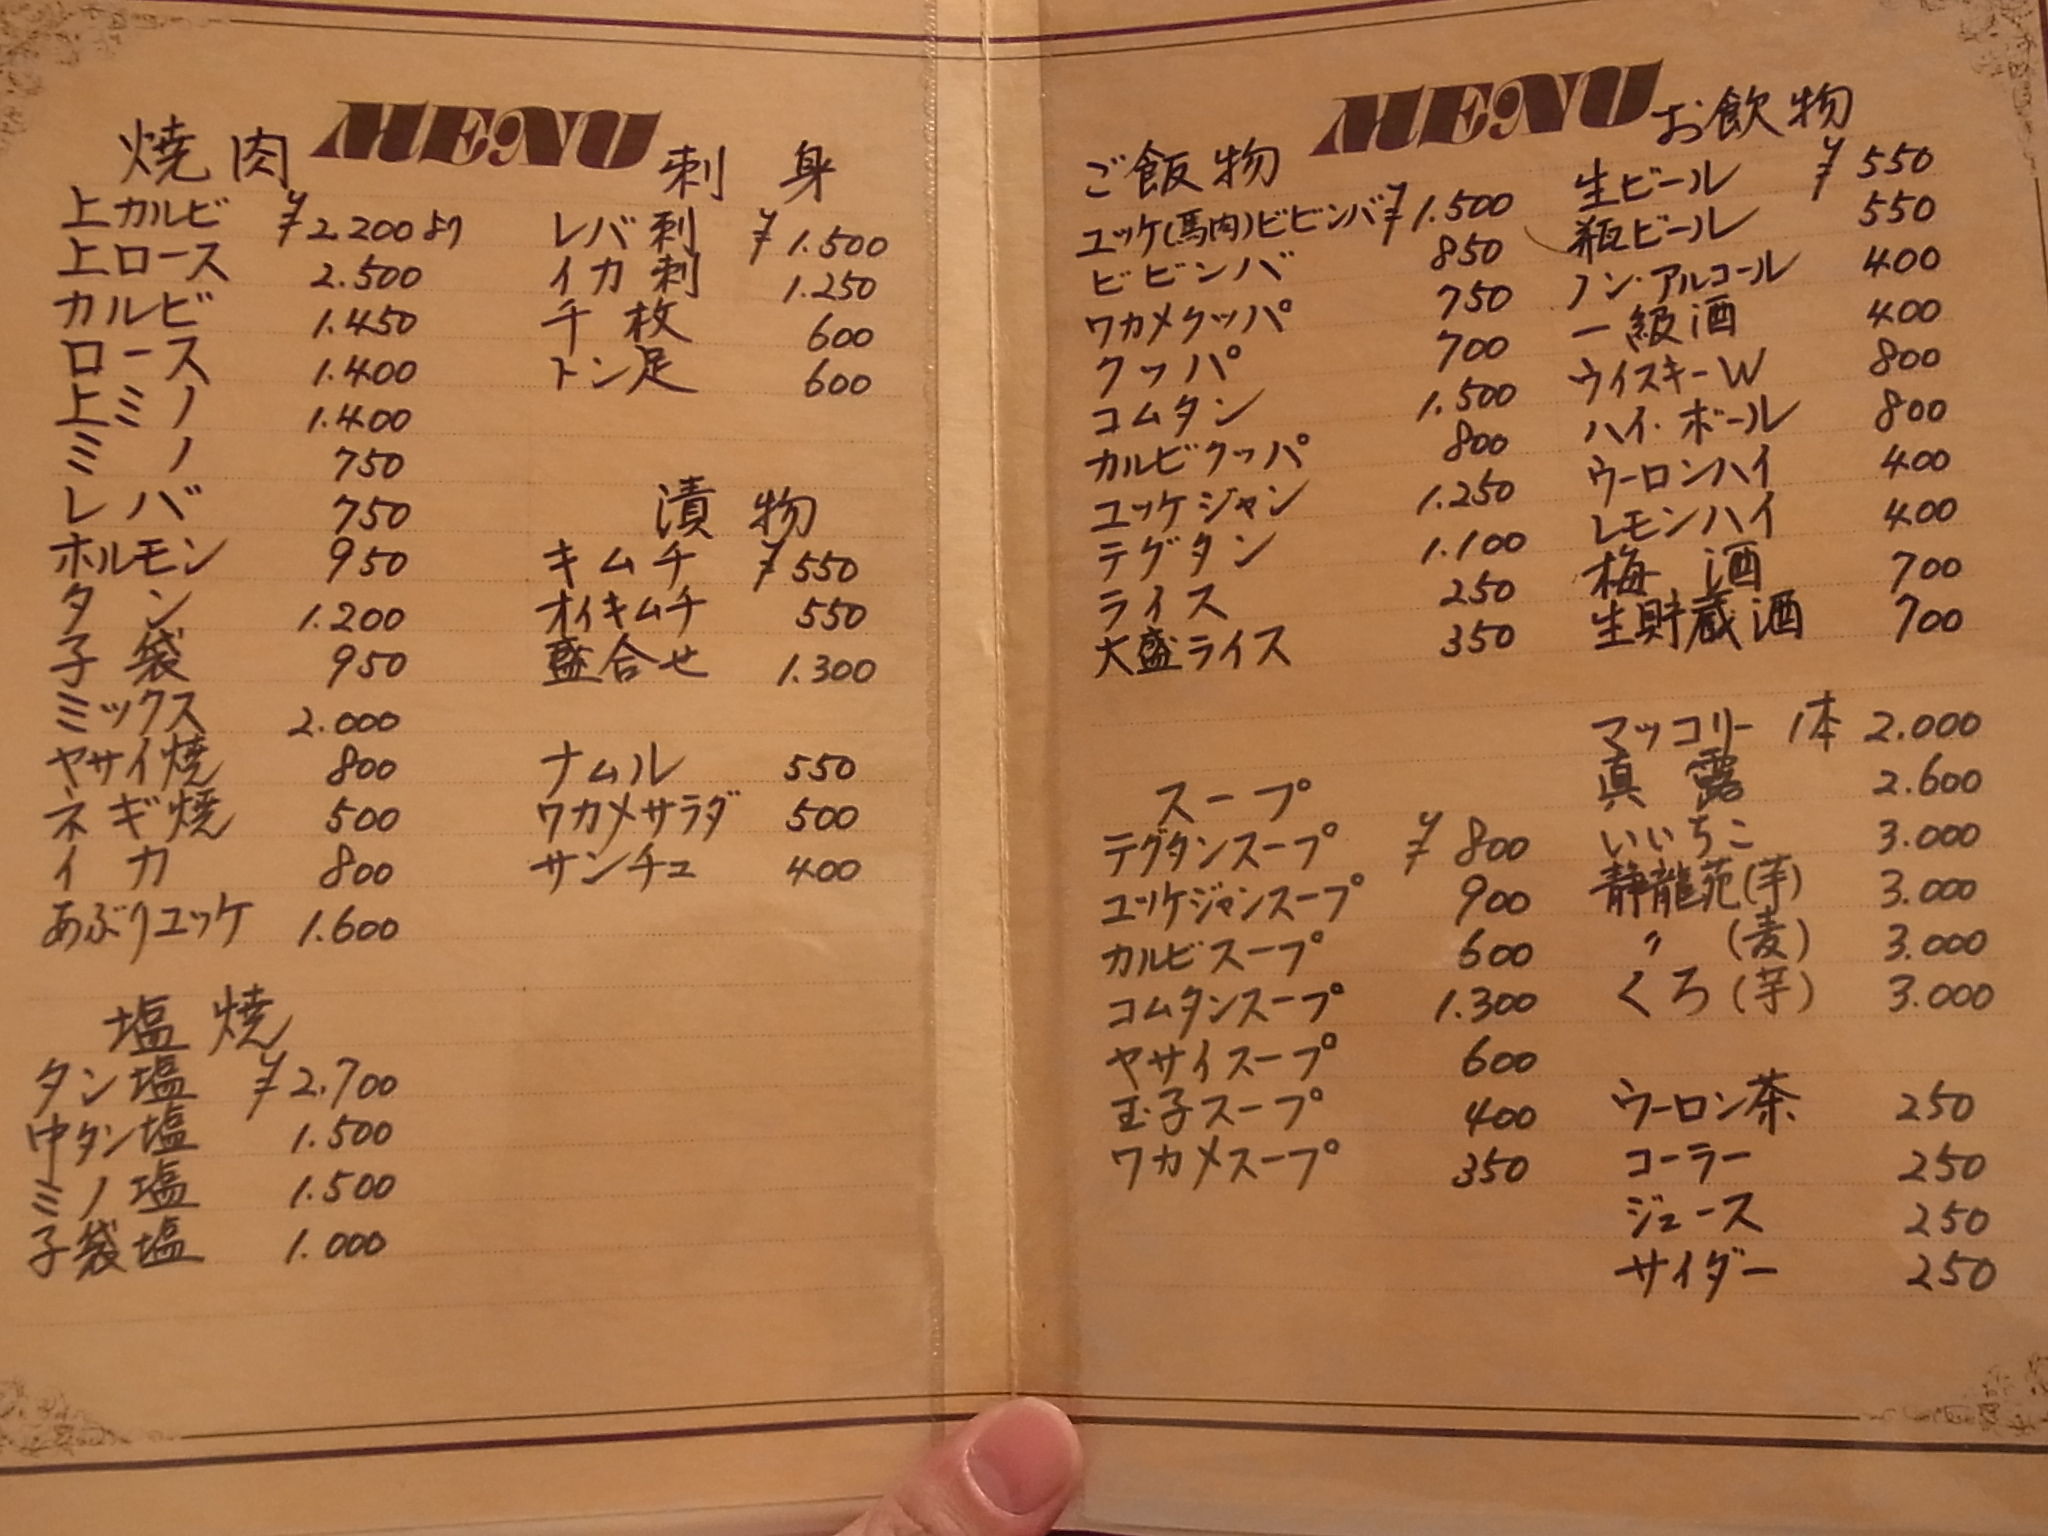 MENU
焼肉
上カルビ ¥2.200より
上ロース 2.500
カルビ 1.450
ロース 1.400
上ミノ 1.400
ミノ 750
レバ 750
ホルモン 950
タン 1.200
子袋 950
ミックス 2.000
ヤサイ焼 800
ネギ焼 500
イカ 800
あぶりユッケ 1.600
塩焼
タン塩 ¥2.700
中タン塩 1.500
ミノ塩 1.500
子袋塩 1.000
刺身
レバ刺 ¥1.500
イカ刺 1.250
千枚 600
トン足 600
漬物
キムチ ¥550
オイキムチ 550
盛合せ 1.300
ナムル 550
ワカメサラダ 500
サンチュ 400
MENU
ご飯物
ユッケ(馬肉)ビビンバ ¥1.500
ビビンバ 850
ワカメクッパ 750
クッパ 700
コムタン 1.500
カルビクッパ 800
ユッケジャン 1.250
テグタン 1.100
ライス 250
大盛ライス 350
スープ
テグタンスープ ¥800
ユッケジャンスープ 900
カルビスープ 600
コムタンスープ 1.300
ヤサイスープ 600
玉子スープ 400
ワカメスープ 350
お飲物
生ビール ¥550
瓶ビール 550
ノン・アルコール 400
一級酒 400
ウイスキーW 800
ハイ・ボール 800
ウーロンハイ 400
レモンハイ 400
梅酒 700
生貯蔵酒 700
マッコリー 1本 2.000
真露 2.600
いいちこ 3.000
静龍苑(芋) 3.000
〃 (麦) 3.000
くろ(芋) 3.000
ウーロン茶 250
コーラー 250
ジュース 250
サイダー 250